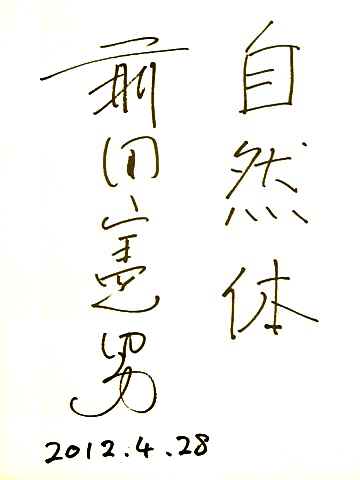 自然体
前田憲男
2012.4.28